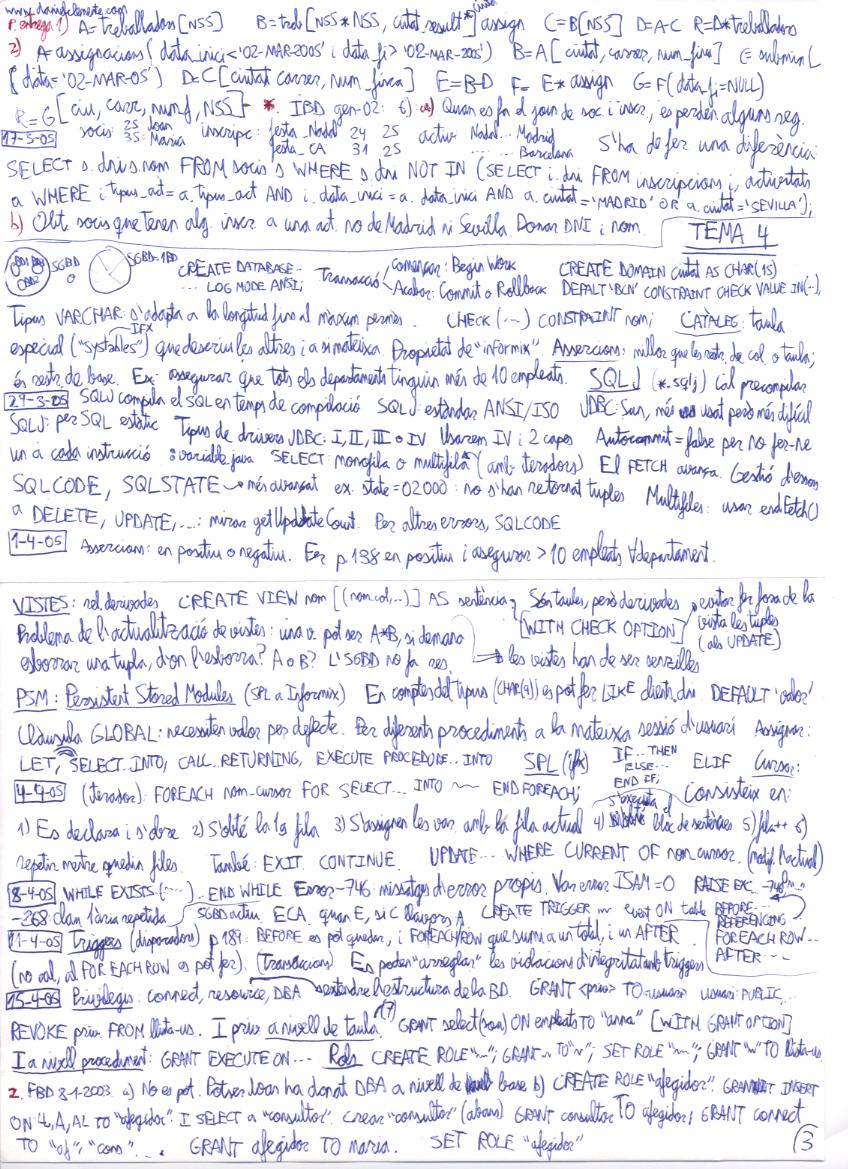 www.danielclemente.com
P. entrega 1) A=treballadors[NSS] B=treb[NSS*NSS, ciutat_result*] assign C=B[NSS] D=A-C R=D*treballadors
2) A=assignacions(data_inici<'02-MAR-2005' i data_fi>'02-MAR-2005') B=A[ciutat, carrer, num_finca] C=submin(
(data='02-MAR-05') D=C[ciutat carrer, num_finca] E=B-D F=E*assign G=F(data_fi=NULL)
R=G[ciu, carr, numf, NSS] * IBD gen-02: 6) a) Quan es fa el join de soc. i inscr., es perden alguns reg.
17-3-05 socis: 25 Joan 35: Maria inscripc: festa_Nadal 24 25 festa_CA 31 25 activ Nadal... Madrid ...... Barcelona S'ha de fer una diferència:
SELECT s.dni, s.nom FROM socis s WHERE s.dni NOT IN (SELECT i.dni FROM inscripcions i, activitats
a WHERE i.tipus_act=a.tipus_act AND i.data_inici=a.data_inici AND a.ciutat='MADRID' OR a.ciutat='SEVILLA');
b) Obt. socis que tenen alg. inscr a una act. no de Madrid ni Sevilla. Donar DNI i nom.
TEMA 4
SGBD SGBD=1BD CREATE DATABASE... Transacció Començar: Begin Work CREATE DOMAIN ciutat AS CHAR(15)
... LOG MODE ANSI; Acabar: Commit o Rollback DEFALT 'BCN' CONSTRAINT CHECK VALUE IN(...),
Tipus VARCHAR: s'adapta a la longitud fins al màxim permès. CHECK (...) CONSTRAINT nom; CATÀLEG: taula
IFX
especial ("systables") que descriu les altres i a si mateixa. Propietat de "informix" Assercions: millor que les restr. de col. o taula;
és restr. de base. Ex: assegurar que tots els departaments tinguin més de 10 empleats. SQLJ (*.sqlj) cal precompilar
29-3-05 SQLJ compila el SQL en temps de compilació SQLJ: estàndar ANSI/ISO JDBC: Sun, més usat però més difícil
SQLJ: per SQL estàtic Tipus de drivers JDBC: I, II, III o IV Usarem IV i 2 capes Autocommit=false per no fer-ne
un a cada instrucció :variable java SELECT: monofila o multifila (amb iteradors) El FETCH avança. Gestió d'errors
SQLCODE, SQLSTATE → més avançat ex. state=02000: no s'han retornat tuples Multifiles: usar endFetch()
a DELETE, UPDATE,...: mirar getUpdateCount. Per altres errors, SQLCODE
1-4-05 Assercions: en positiu o negatiu. Fer p.138 en positiu i assegurar >10 empleats ∀departament.
VISTES: rel. derivades CREATE VIEW nom [(nomcol,...)] AS sentència; Són taules, però derivades evitar fer fora de la
Problema de l'actualització de vistes: una v. pot ser A*B, si demano [WITH CHECK OPTION] vista les tuples
esborrar una tupla, d'on l'esborra? A o B? L'SGBD no fa res → les vistes han de ser senzilles (als UPDATE)
PSM: Persistent Stored Modules (SPL a Informix) En comptes del tipus (CHAR(9)) es pot fer LIKE clients.dni DEFAULT 'valor'
Clàusula GLOBAL: necessiten valor per defecte. Per diferents procediments a la mateixa sessió d'usuari Assignar:
LET, SELECT..INTO, CALL..RETURNING, EXECUTE PROCEDURE..INTO SPL (ifx) IF..THEN ELSE... END IF; ELIF Cursor:
4-4-05 (iterador): FOREACH nom-cursor FOR SELECT... INTO ~~ END FOREACH; Consisteix en:
1) Es declara i s'obre 2) S'obté la 1a fila 3) S'assignen les var. amb la fila actual 4) s'executa el bloc de sentències 5) fila++ 6)
repetir mentre quedin files. També: EXIT, CONTINUE. UPDATE... WHERE CURRENT OF nom_cursor. (modif. l'actual)
8-4-05 WHILE EXISTS (...)... END WHILE Error -746: missatges d'error propis. Var error ISAM=0 RAISE EX. -746,"..."
-268: clau primària repetida SGBD actiu. ECA. quan E, si C llavors A CREATE TRIGGER ~ event ON table BEFORE...
REFERENCING...
11-4-05 Triggers (disparadors) p.189: BEFORE es pot quedar, i FOR EACH ROW que sumi a un total, i un AFTER FOR EACH ROW...
(no cal, al FOR EACH ROW es pot fer). (Transaccions) Es poden "arreglar" les violacions d'integritat amb triggers AFTER ....
15-4-05 Privilegis: connect, resource, DBA estendre l'estructura de la BD. GRANT <priv> TO <usuaris> usuari: PUBLIC...
REVOKE priv. FROM llista-us. I privs a nivell de taula (7) GRANT select(sou) ON empleats TO "anna" [WITH GRANT OPTION]
I a nivell procediment: GRANT EXECUTE ON... Rols CREATE ROLE "~"; GRANT ~ TO "~"; SET ROLE "~"; GRANT "~" TO llista-us
2. FBD 8-1-2003. a) No es pot. Potser Joan ha donat DBA a nivell de base b) CREATE ROLE "afegidor". GRANT INSERT
ON 4, A, AL TO "afegidor". I SELECT a "consultor". Crear "consultor" (abans) GRANT consultor TO afegidor; GRANT connect
TO "af", "cons"... GRANT afegidor TO maria. SET ROLE "afegidor"
3